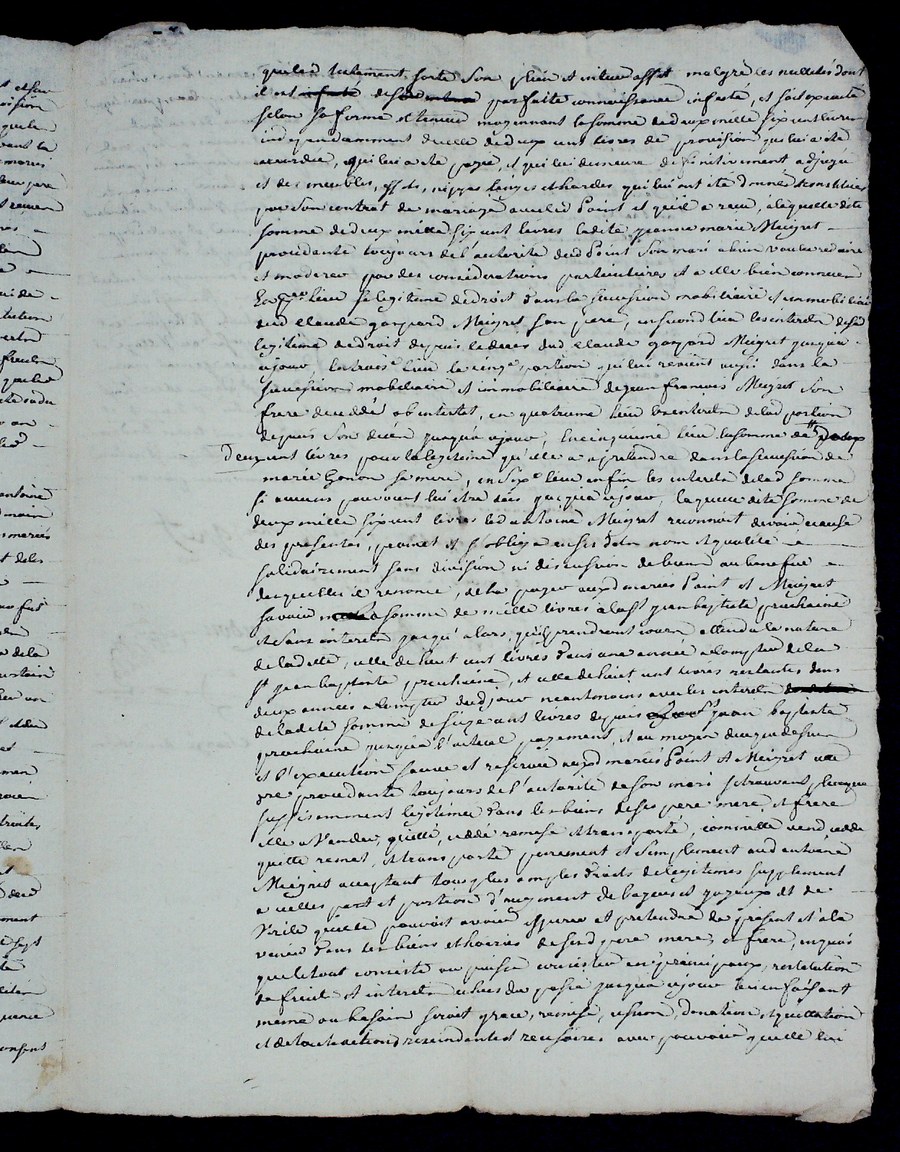 que led testament sorte son plein et entier effet malgré les nullités dont
il est de parfaite connoissance infecté, et soit executé
selon sa forme et teneur moyennant la somme de deux mille six cent livres
independamment de celle de deux cent livres de provision qui lui a été
accordée, qui lui a été payée, et qui lui demeure definitivement adjugée
et des meubles, effets, nippes linges et hardes, qui lui ont été donné et constitués
par son contrat de mariage avec led Point et qu'il a reçu, a laquelle dite
somme de deux mille six cent livres ladite jeanne marie Meigret
procedante toujours de l'autorité dud Point son mari a bien voulu reduire
et moderer par des considerations particulieres et a elle bien connues
En lieu sa legitime de droit dans la succession mobiliaire et immobiliaire
dud claude gaspard Meigret son pere, en second lieu les interets de lad
legitime de droit depuis le deces dud claude gaspard Meigret jusqu'a
ajour, en trois.e lieu la cinq.e portion qui lui revient aussi dans la
succession mobiliaire et immobiliaire de jean francois Meigret son
frere decedé ab intestat, en quatrieme lieu les interets de lad portion
depuis son décès jusqu'a ajour, en cinquieme lieu la somme de
deux cent livres pour la legitime qu'elle a a pretendre dans la succession de
marie Gonon sa mere, en six.e lieu enfin les interets de lad somme
si aucuns pouvoient lui etre dûs jusqu'a ajour, laquelle dite somme de
deux mille six cent livres led antoine Meigret reconnoit devoir a cause
des presentes, promet et s'oblige en ses d. nom et qualité
solidairement sans division ni discussion de biens au benefice
desquelles il renonce, de la payer auxd mariés Point et Meigret
savoir la somme de mille livres a la st jean baptiste prochaine
et sans interets jusqu'alors, qu'ils prendront cours attendu la nature
de la dette, celle de huit cent livres dans une année a compter de la
st jean baptiste prochaine, et celle de huit cent livres restantes dans
deux années a compter dud jour neantmoins avec les interets
de ladite somme de seize cent livres depuis la st jean baptiste
prochaine jusqu'a l'actuel payement, et au moyen de ce que dessus
et l'execution sauve et reservée auxd mariés Point et Meigret
procedante toujours de l'autorité de son mari se trouvant
suffisamment legitimée dans les biens de ses pere mere, et frere
elle a vendu, quitté, cedé remise et transporté, comme elle vend, cede
quitte remet, et transporte purement et simplement aud antoine
Meigret acceptant tous plus amples droits de legitimes supplement
a icelles part et portions d'augment de bagues et joyaux et de
virile qu'elle pouvoit avoir esperer et pretendre de présent et a la
venir dans les biens et hoiries de sesd pere mere, et frere, en quoi
que le tout consiste ou puisse consister en principaux, restitution
de fruits et interets echus du passé jusqu'a ajour lui en faisant
meme au besoin seroit grace, remise, cession, donation et quittation
et de toutes actions rescindantes et rescisoires avec pouvoir qu'elle lui